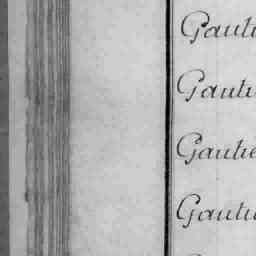 Gauti
Gautie
Gautie
Gautie